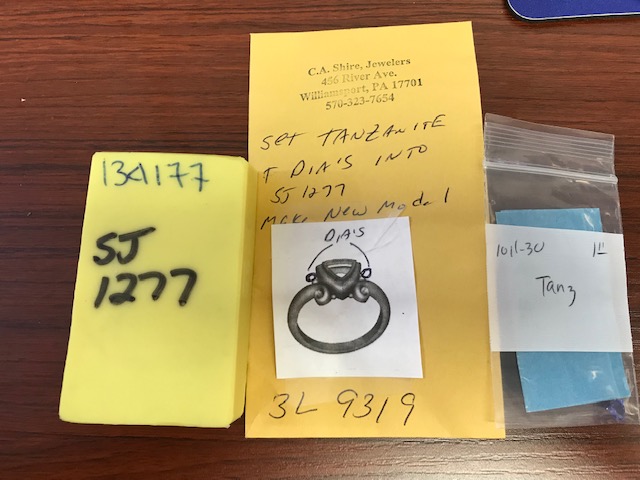 134177
SJ
1277
C.A. Shire, Jewelers
456 River Ave.
Williamsport, PA 17701
570-323-7654
SET TANZANITE
+ DIA'S INTO
SJ 1277
MAKE NEW Model
DIA'S
3L 9319
Tanz